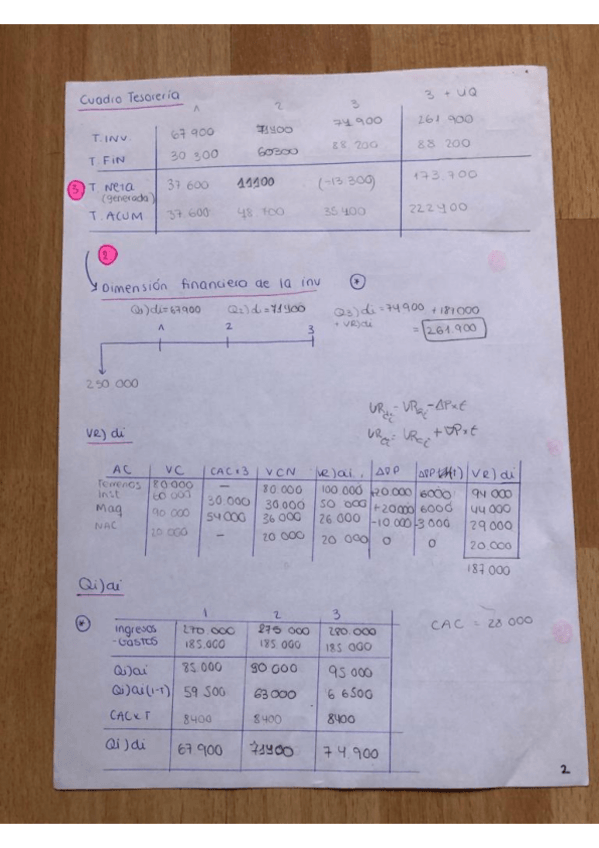 Cuadro Tesorería
1 2 3 3 + UQ
T. INV 67 900 71400 74 900 261 900
T. FIN 30 300 60300 88 200 88 200
3 T. Neta (generada) 37 600 11100 (-13.300) 173.700
T. ACUM 37.600 48 700 35 400 222400
2
Dimensión financiera de la inv *
Q1)di=67900 Q2)di=71400 Q3)di=74900 +181000
+ VR)di = 261.900
1 2 3
250 000
VR)di
AC VC CAC×3 VCN VR)ai ΔPP VR)di
Terrenos 80 000 — 80 000 100 000 +20 000 6000 94 000
Inst 60 000 30 000 30 000 50 000 +20000 6000 44 000
Maq 90 000 54 000 36 000 26 000 -10 000 -3 000 29 000
NAC 20 000 — 20 000 20 000 0 0 20.000
187 000
Qi)ai
* 1 2 3 CAC = 28 000
ingresos 270.000 275 000 280.000
-Gastos 185.000 185 000 185 000
Qi)ai 85 000 90 000 95 000
Qi)ai(1-T) 59 500 63000 6 6500
CAC×T 8400 8400 8400
Qi)di 67 900 71400 74 900
2